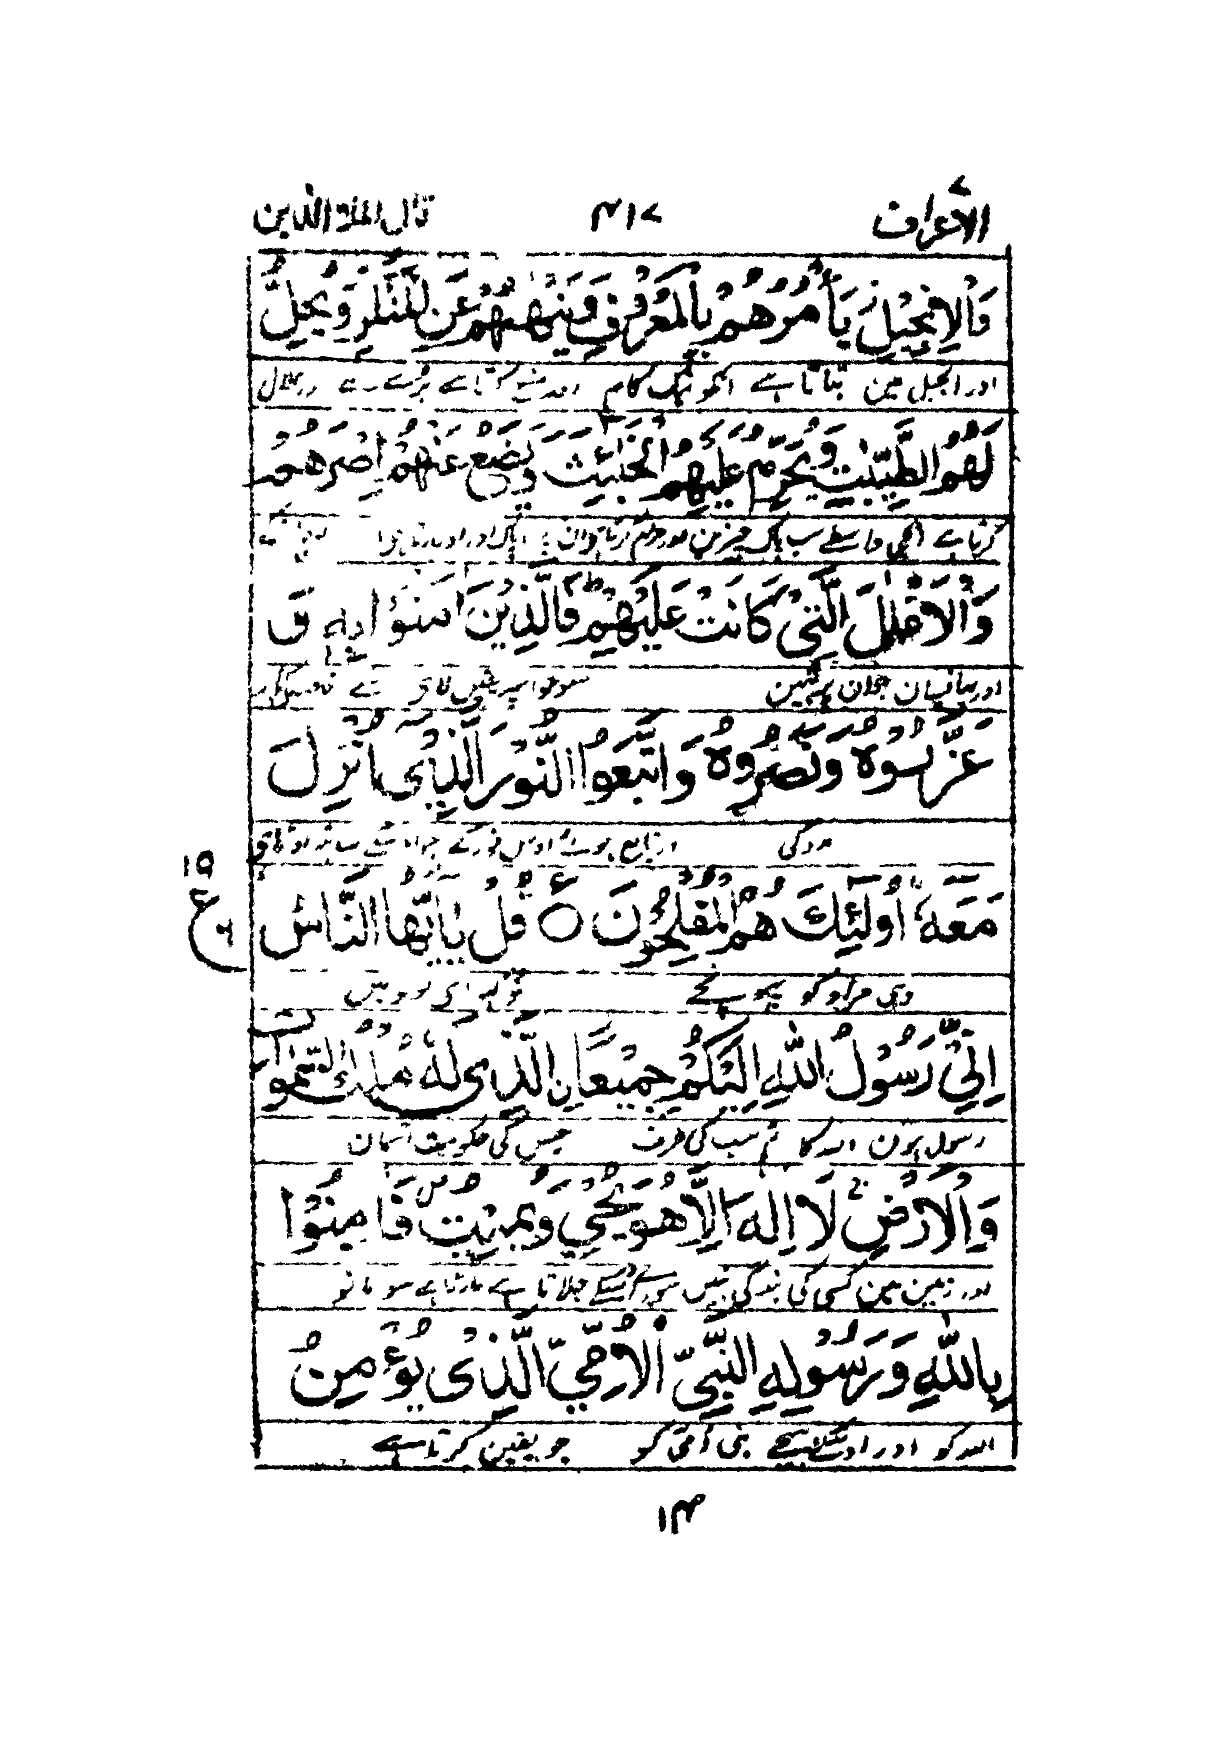 الاعراف ٧ ٤١٧ قال الملا الذين
وَالْاِنْجِيْلِ يَأْمُرُهُمْ بِالْمَعْرُوْفِ وَيَنْهٰىهُمْ عَنِ الْمُنْكَرِ وَيُحِلُّ
اور انجیل مین بتاتا ہے انکو نیک کام اور منع کرتا ہے برے سے اور حلال
لَهُمُ الطَّيِّبٰتِ وَيُحَرِّمُ عَلَيْهِمُ الْخَبٰٓئِثَ وَيَضَعُ عَنْهُمْ اِصْرَهُمْ
کرتا ہے انکی واسطے سب پاک چیزین اور حرام کرتا
وَالْاَغْلٰلَ الَّتِيْ كَانَتْ عَلَيْهِمْ ط فَالَّذِيْنَ اٰمَنُوْا بِهٖ وَ
اور پہانسیان جو ان پر تہین سو جو اسپر یقین لائی
عَزَّرُوْهُ وَنَصَرُوْهُ وَاتَّبَعُوا النُّوْرَ الَّذِيْٓ اُنْزِلَ
مدد کی اور تابع ہوے اوس نور کے جو
مَعَهٗٓ اُولٰٓئِكَ هُمُ الْمُفْلِحُوْنَ ○ ع قُلْ يٰٓاَيُّهَا النَّاسُ
١٩ ع
وہی مراد کو پہونچے تو کہہ ای لوگو مین
اِنِّيْ رَسُوْلُ اللّٰهِ اِلَيْكُمْ جَمِيْعَا ِۨالَّذِيْ لَهٗ مُلْكُ السَّمٰوٰتِ
رسول ہون اللہ کا تم سب کی طرف جس کی حکومت آسمان
وَالْاَرْضِ لَآ اِلٰهَ اِلَّا هُوَ يُحْيٖ وَيُمِيْتُ ص فَاٰمِنُوْا
اور زمین مین کسی کی بندگی نہیں سوے اسکے جلاتا ہے مارتا ہے سو مانو
بِاللّٰهِ وَرَسُوْلِهِ النَّبِيِّ الْاُمِّيِّ الَّذِيْ يُؤْمِنُ
اللہ کو اور اوسکے بہیجے نبی امی کو جو یقین کرتا ہے